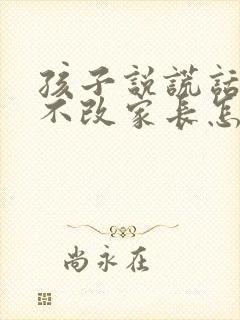 孩子説謊話
不改家長怎
尚永在